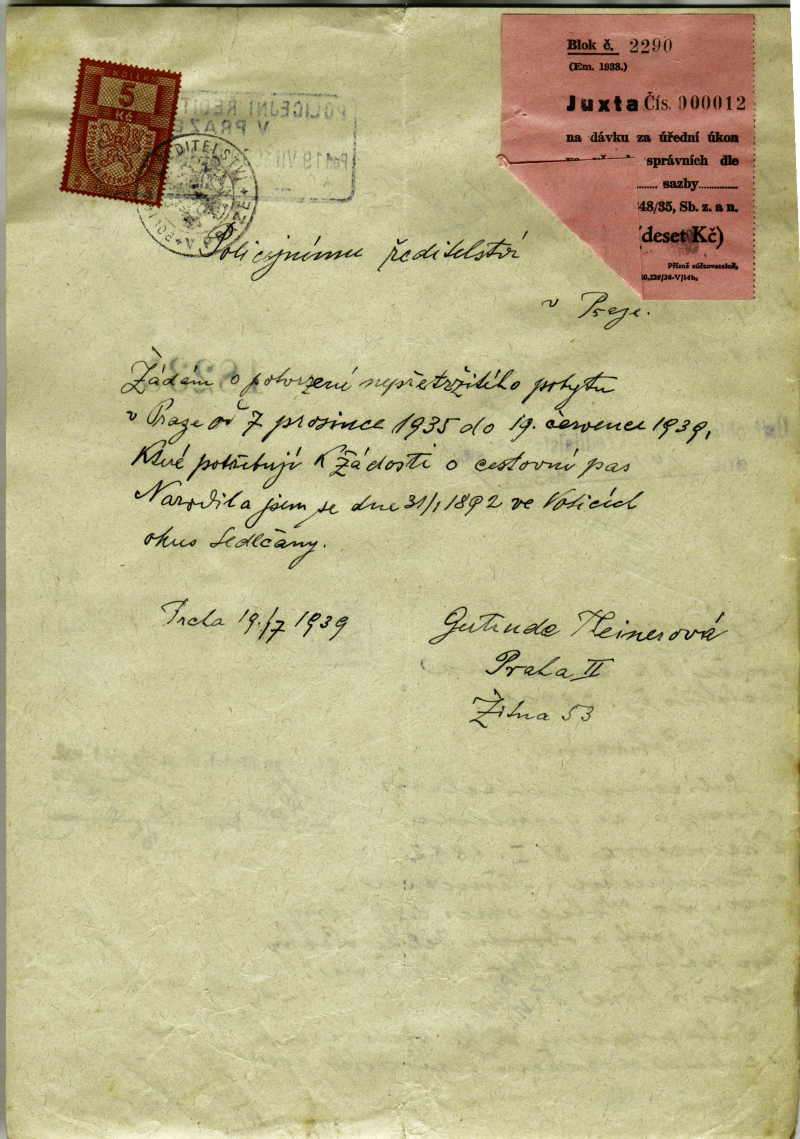 KOLEK
5
Kč
POLICEJNÍ ŘEDIT
V PRAZE
Blok č. 2290
(Em. 1938.)
Juxta Čís. 000012
na dávku za úřední úkon
správních dle
sazby
48/35, Sb. z. a n.
deset Kč)
Přísně zúčtovatelné.
Policejnímu ředitelství
v Praze.
Žádám o potvrzení nepřetržitého pobytu
v Praze od 7 prosince 1935 do 19. července 1939,
Které potřebuji K žádosti o cestovní pas
Narodila jsem se dne 31/I 1892 ve Voticích
okres Sedlčany.
Praha 19./7 1939
Gertrude Kleinerová
Praha II
Žitna 53